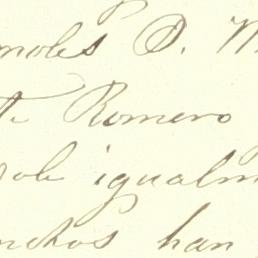 noles D. M
te Romero
ole igualm
nchos han